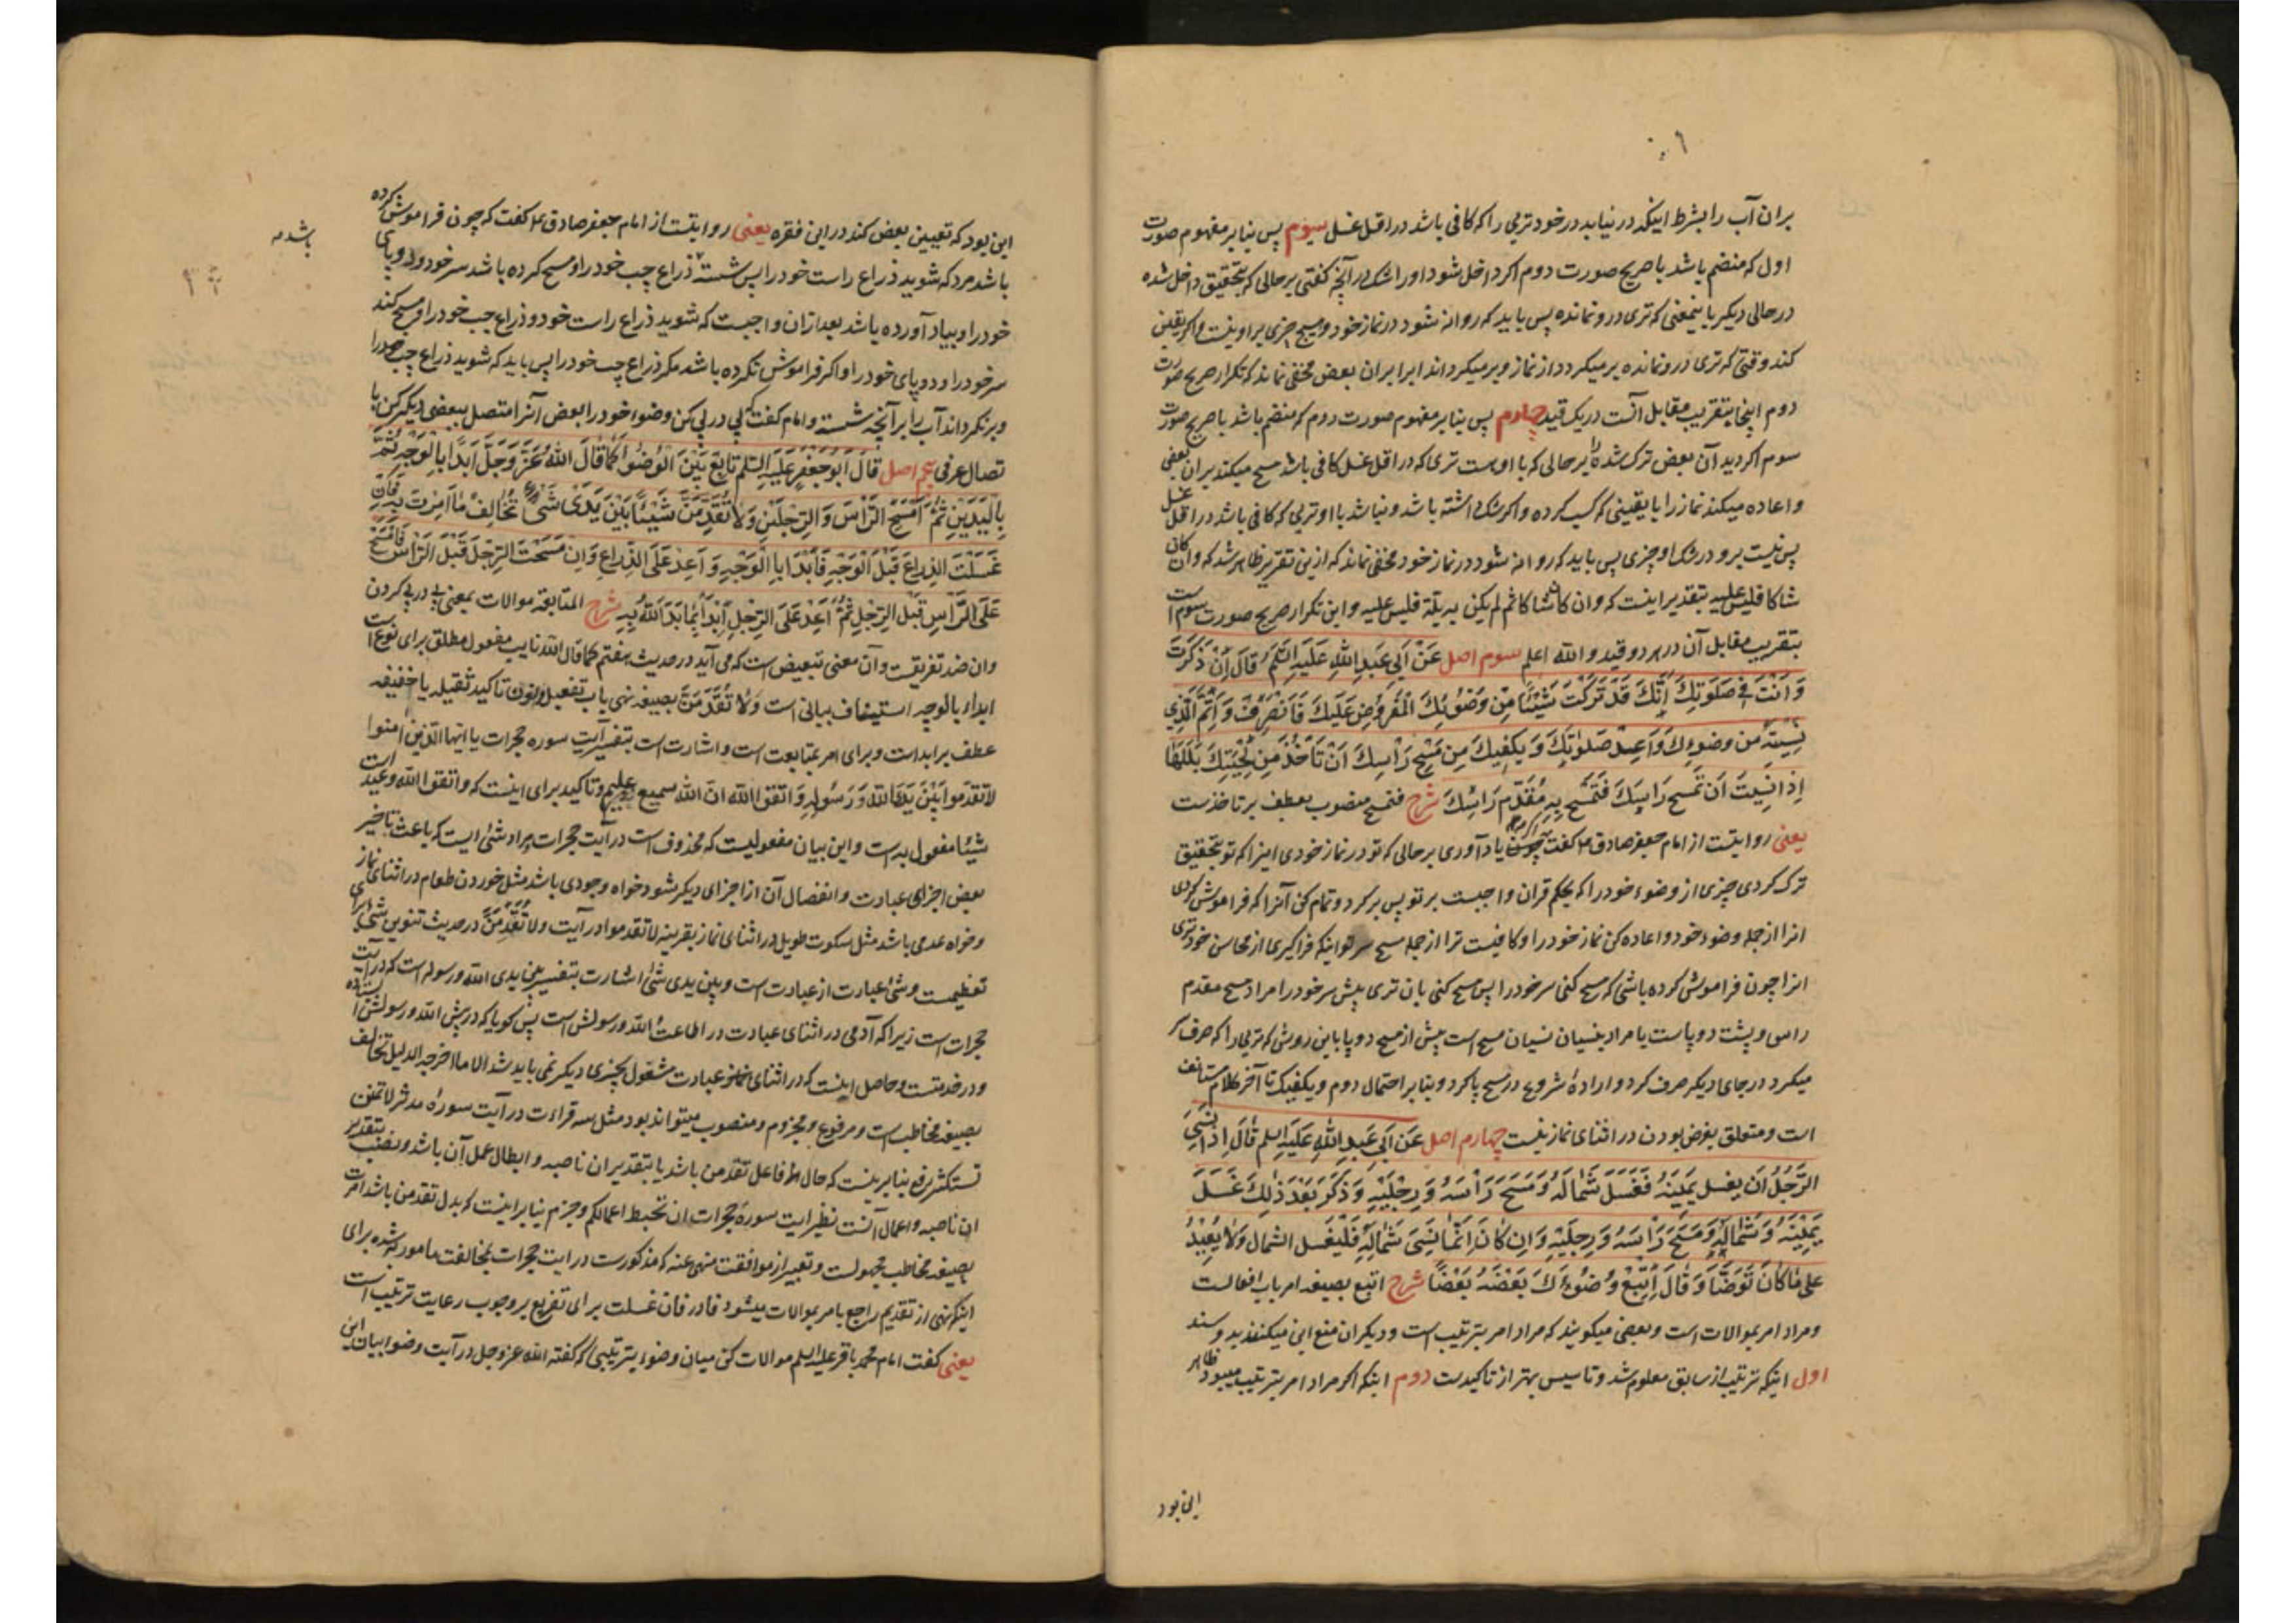 بران آب را بشرط اینکه در نیابد در خود تریی را که کافی باشد در اقل غسل سیوم پس بنابر مفهوم صورت
اول که منضم باشد با صریح صورت دوم اکر داخل شود او را شک در آنچه کفتی بر حالی که بتحقیق داخل شده
در حالی دیکر باینمعنی که تری درو نمانده پس باید که روانه شود در نماز خود و هیچ چیزی بر او نیست و اکر یقین
کند وقتی که تری درو نمانده بر میکردد از نماز و بر میکرداند آبرا بران بعض مخفی نماند که تکرار صریح صورت
دوم اینجا بتقریب مقابل آنست در یک قید چهارم پس بنابر مفهوم صورت دوم که منضم باشد با صریح صورت
سوم اکر دید آن بعض ترک شده را بر حالی که با اوست تری که در اقل غسل کافی باشد مسح میکند بران بعض
و اعاده میکند نماز را با یقینی که کسب کرده و اکر شک داشته باشد و نباشد با او تریی که کافی باشد در اقل غسل
پس نیست برو در شک او چیزی پس باید که روانه شود در نماز خود مخفی نماند که ازین تقریر ظاهر شد که و ان کان
شاکا فلیس علیه بتقدیر اینست که و ان کان شاکا ثم لم یکن به بلة فلیس علیه و این تکرار صریح صورت سوم است
بتقریب مقابل آن در هر دو قید و الله اعلم سوم اصل عَنْ اَبی عَبدِ اللهِ عَلَیهِ السَّلَم قالَ اِنْ ذَکَرتَ
وَ اَنْتَ فی صَلوتِكَ اَنَّكَ قَدْ تَرَکتَ شَیْئًا مِن وَضُوئِكَ المَفروضِ عَلَیكَ فَانْصَرِفْ وَ اَتِمَّ الَّذی
نَسِیتَهُ مِن وضوءِكَ وَ اَعِدْ صَلوتَكَ وَ یَکفیكَ مِن مَسْحِ رَأسِكَ اَنْ تَأخُذَ مِن لِحْیَتِكَ بَلَلَها
اِذا نَسِیتَ اَن تَمسَحَ رَاسِكَ فَتَمسَحَ بِهِ مُقَدَّم رَاسِكَ شرح فتمسح منصوب بعطف بر تاخذست
یعنی روایتست از امام جعفر صادق ع م کفت یاد آوری بر حالی که تو در نماز خودی اینرا که تو بتحقیق
ترک کردی چیزی از وضوء خود را که بحکم قران واجبست بر تو پس برکرد و تمام کن آنرا که فراموش کردی
انرا از جمله وضوء خود و اعاده کن نماز خود را و کافیست ترا از جمله مسح سر تو اینکه فراکیری از محاسن خود تری
انرا چون فراموش کرده باشی که مسح کنی سر خود را پس مسح کنی بان تری پیش سر خود را مراد مسح مقدم
راس و پشت دو پاست یا مراد بنسیان نسیان مسح است پیش از مسح دو پا باین روش که تریی را که صرف سر
میکرد در جای دیکر صرف کرد و ارادهٔ شروع در مسح پا کرد و بنابر احتمال دوم و یکفیک تا آخر کلام مستانف
است و متعلق بفرض بودن در اثنای نماز نیست چهارم اصل عَن اَبی عَبدِ اللهِ عَلَیهِ السلم قالَ اِذا نَسِیَ
الرَّجُلُ اَن یغسل یَمینَهُ فَغَسَلَ شَمالَهُ وَ مَسَحَ رَأسَهُ وَ رِجلَیْهِ وَ ذَکَرَ بَعْدَ ذٰلِكَ غَسَلَ
یَمینَهُ وَ شَمالَهُ وَ مَسَحَ رَأسَهُ وَ رِجلَیْهِ وَ اِن کانَ اِنَّما نَسِیَ شَمالَهُ فَلْیَغسل الشمال وَ لا یُعیدُ
عَلی ما کانَ تَوَضَّأ وَ قالَ اَتْبِعْ وُضوءَكَ بَعْضَهُ بَعْضًا شرح اتبع بصیغه امر باب افعالست
و مراد امر بموالات است و بعضی میکویند که مراد امر بترتیب است و دیکران منع این میکنند بدو سند
اول اینکه ترتیب از سابق معلوم شد و تاسیس بهتر از تاکیدست دوم اینکه اکر مراد امر بترتیب میبود ظاهر
این بود
این بود که تعیین بعض کند در این فقره یعنی روایتست از امام جعفر صادق ع م کفت که چون فراموش کرده
باشد مرد که شوید ذراع راست خود را پس شسته ذراع چپ خود را و مسح کرده باشد سر خود و دو پای
باشد
خود را و بیاد آورده باشد بعد ازان واجبست که شوید ذراع راست خود و ذراع چپ خود را و مسح کند
سر خود را و دو پای خود را و اکر فراموش نکرده باشد مکر ذراع چپ خود را پس باید که شوید ذراع چپ خود را
و بر نکرداند آب را بر آنچه شسته و امام کفت که پی در پی کن وضوء خود را بعض آنرا متصل ببعضی دیکر کن با
تصال عرفی پنجم اصل قالَ اَبو جَعفَرٍ عَلَیهِ السَّلم تابِعْ بَیْنَ الوُضوءِ کَما قالَ اللهُ عَزَّ وَ جَلَّ اِبدَأ بِالوَجْهِ ثُمَّ
بِالیَدَینِ ثُمَّ امْسَحِ الرَّأسَ وَ الرِّجلَیْنِ وَ لا تُقَدِّمَنَّ شَیْئًا بَیْنَ یَدَی شَیءٍ تُخالِفُ ما اُمِرْتَ بِهِ فَاِن
غَسَلْتَ الذِّراعَ قَبْلَ الوَجْهِ فَابْدَا بِالوَجْهِ وَ اَعِدْ عَلَی الذِّراعِ وَ اِن مَسَحْتَ الرِّجلَ قَبْلَ الرَّأسِ فَامْسَحْ
عَلَی الرَّاسِ قَبْلَ الرِّجلِ ثُمَّ اَعِدْ عَلَی الرِّجلِ اِبْدَأ بِما بَدَأ اللهُ بِهِ شرح المتابعة موالات بمعنی پی در پی کردن
و ان ضد تفریقست و آن معنی تبعیض است که می آید در حدیث هفتم کما قال الله نایب مفعول مطلق برای نوع است
ابدا بالوجه استیناف بیانی است وَ لا تُقَدِّمَنَّ بصیغه نهی باب تفعیل و نون تاکید ثقیله یا خفیفه
عطف بر ابداست و برای امر بمتابعت است و اشارت است بتفسیر آیت سوره حجرات یا ایها الذین امنوا
لا تقدموا بَیْنَ یَدَیِ الله وَ رَسُولِهِ وَ اتقوا الله انّ الله سمیع علیم و تاکید برای اینست که و اتقوا الله وعید است
شیئا مفعول به است و این بیان مفعولیست که محذوف است در آیت حجرات مراد شیٔ ایست که باعث تاخیر
بعض اجزای عبادت و انفصال آن از اجزای دیکر شود خواه وجودی باشد مثل خوردن طعام در اثنای نماز
و خواه عدمی باشد مثل سکوت طویل در اثنای نماز بقرینه لا تقدموا در آیت و لا تُقَدِّمَنَّ در حدیث تنوین شیٔ برای
تعظیمست و شیٔ عبارت از عبادت است و بین یدی شیٔ اشارت بتفسیر بین یدی الله و رسوله است که در آیت
حجرات است زیرا که آدمی در اثنای عبادت در اطاعت الله و رسولش است پس کویا که در پیش الله و رسولش ایستاده
و در خدمتست و حاصل اینست که در اثنای عبادت مشغول بچیزی دیکر نمی باید شد الا ما اخرجه الدلیل تخالف
بصیغه مخاطب است و مرفوع و مجزوم و منصوب میتواند بود مثل سه قراءت در آیت سورهٔ مدثر لا تمنن
تستکثر رفع بنابرینست که حال از فاعل تقدمن باشد یا بتقدیر ان ناصبه و ابطال عمل آن باشد و نصب بتقدیر
ان ناصبه و اعمال آنست نظیر ایت سورهٔ حجرات ان تحبط اعمالکم و جزم بنابر اینست که بدل تقدمن باشد امرت
بصیغه مخاطب مجهولست و تعبیر از موافقت منهی عنه که مذکورست در ایت حجرات بمخالفت مامور به شده برای
اینکه نهی از تقدیم راجع بامر بموالات میشود فا در فان غسلت برای تفریع بر وجوب رعایت ترتیب است
یعنی کفت امام محمد باقر علیه السلم موالات کن میان وضوء بترتیبی که کفته الله عز و جل در آیت وضو بیان این